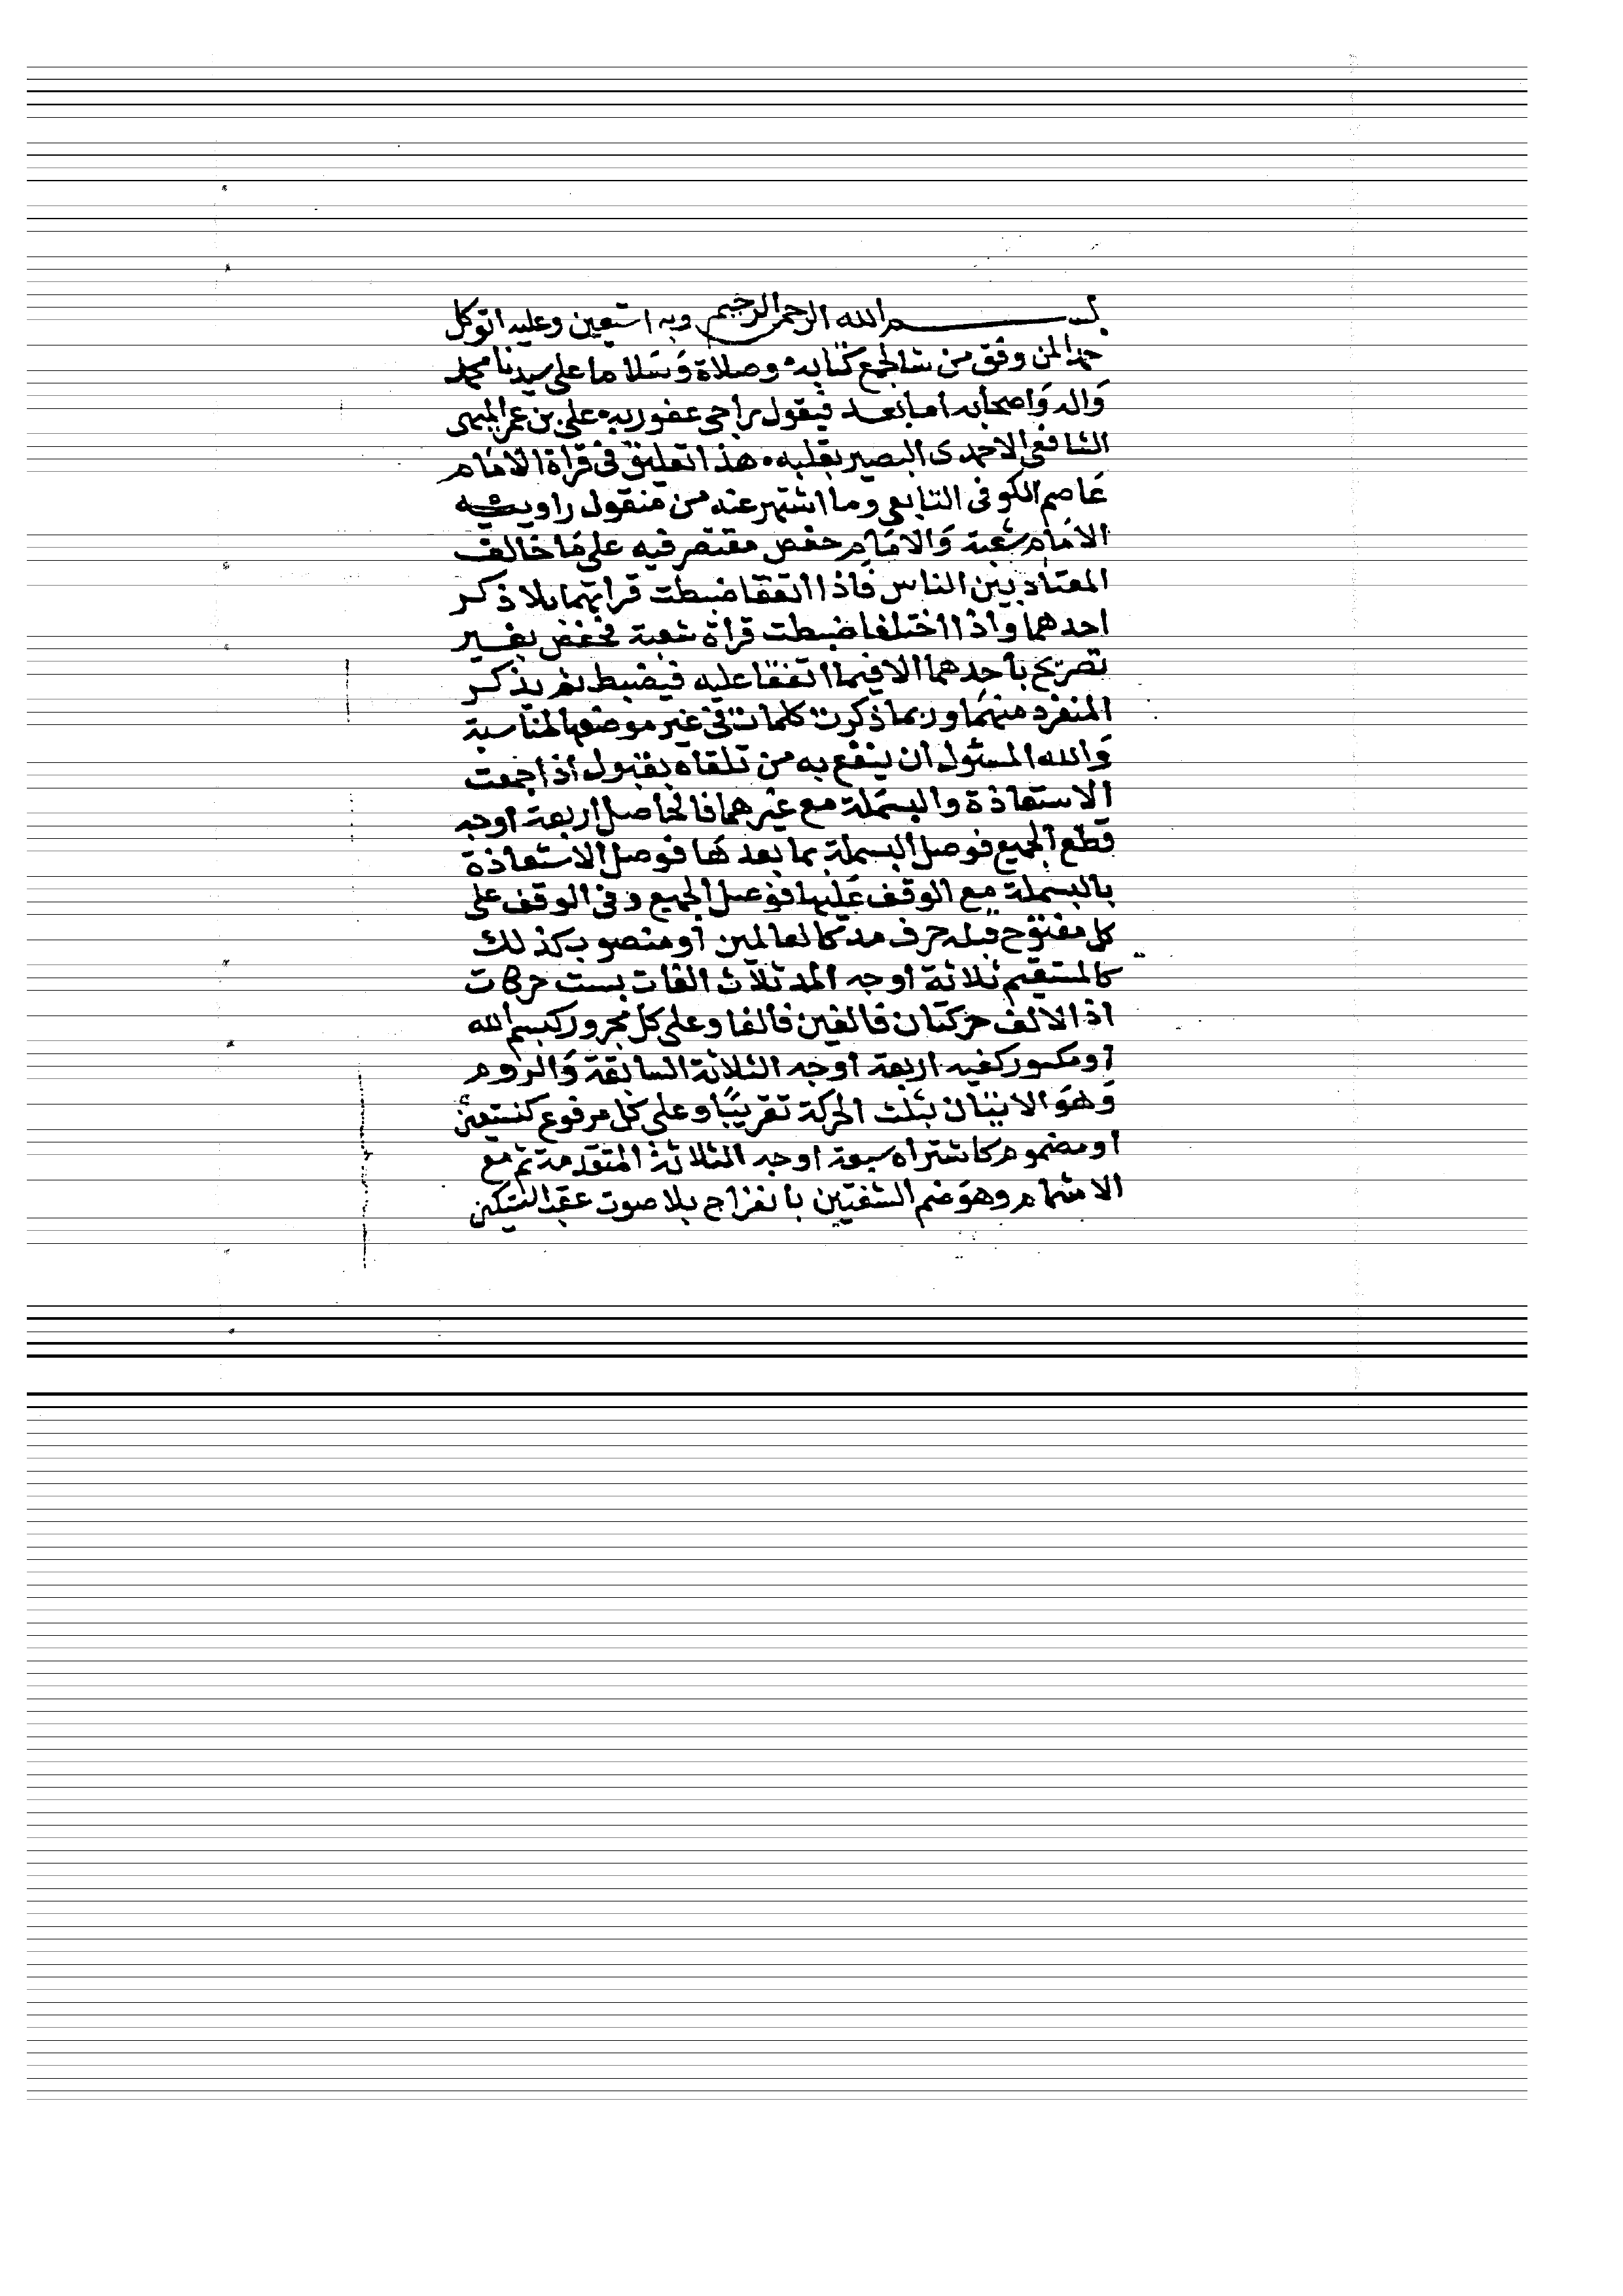 بسم الله الرحمن الرحيم وبه استعين وعليه اتوكل
حمدا لمن وفق من شا لجمع كتابه وصلاة وسلاما على سيدنا محمد
واله واصحابه اما بعد فيقول راجى عفو ربه على بن عمر الميهى
الشافعى الاحمدى البصير بقلبه هذا تعليق فى قراة الامام
عاصم الكوفى التابعى وما اشتهر عنه من منقول راوييه
الامام شعبة والامام حفص مقتصر فيه على ما خالف
المعتاد بين الناس فاذا اتفقا ضبطت قراتهما بلا ذكر
احدهما واذا اختلفا ضبطت قراة شعبة فحفص بغير
تصريح باحدهما الا فيما اتفقا عليه فيضبط ثم يذكر
المنفرد منهما وربما ذكرت كلمات فى غير موضعها لمناسبة
والله المسئول ان ينفع به من تلقاه بقبول اذا جمعت
الاستعاذة والبسملة مع غيرهما فالحاصل اربعة اوجه
قطع الجميع فوصل البسملة بما بعدها فوصل الاستعاذة
بالبسملة مع الوقف عليها فوصل الجميع وفى الوقف على
كل مفتوح قبله حرف مد كالعالمين او منصوب كذلك
كالمستقيم ثلاثة اوجه المد ثلاث الفات بست حركات
اذ الالف حركتان فالفين فالفا وعلى كل مجرور كبسم الله
او مكسور كفيه اربعة اوجه الثلاثة السابقة والروم
وهو الاتيان بثلث الحركة تقريبا وعلى كل مرفوع كنستعين
او مضموم كاشتراه سبعة اوجه الثلاثة المتقدمة ثم مع
الاشمام وهو ضم الشفتين بانفراج بلا صوت عقب التسكين